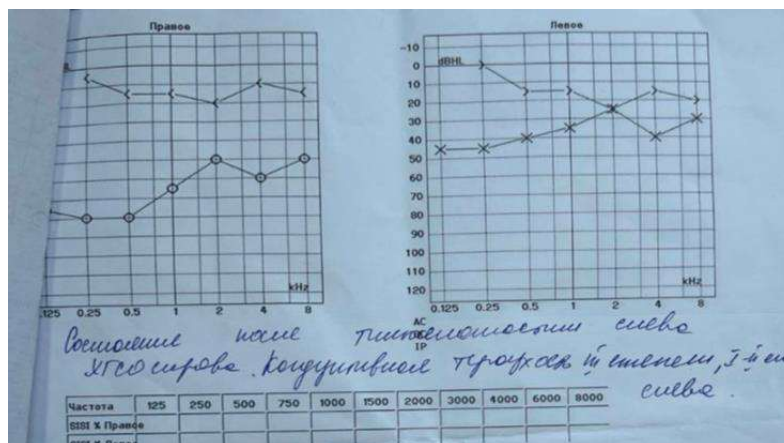 Правое Левое
dBHL
-10
0
10
20
30
40
50
60
70
80
90
100
110
120
kHz kHz
.125 0.25 0.5 1 2 4 8 0.125 0.25 0.5 1 2 4 8
AC
IP
Состояние после тимпанопластики слева
ХГСО справа. Кондуктивная тугоухость III степени, I-й ст
слева.
Частота 125 250 500 750 1000 1500 2000 3000 4000 6000 8000
SISI % Правое